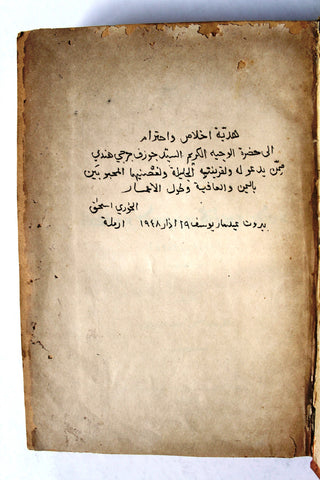 هدية اخلاص واحترام
الى حضرة الوجيه الكريم السيد جوزف رجي هندي
ممّن يدعو له ولقرينته الجليلة ولغصنيهما المحبوبين
باليمن والعافية وطول الاعمار
الخوري اسحق ارملة
بيروت عيد مار يوسف ١٩ اذار ١٩٤٨